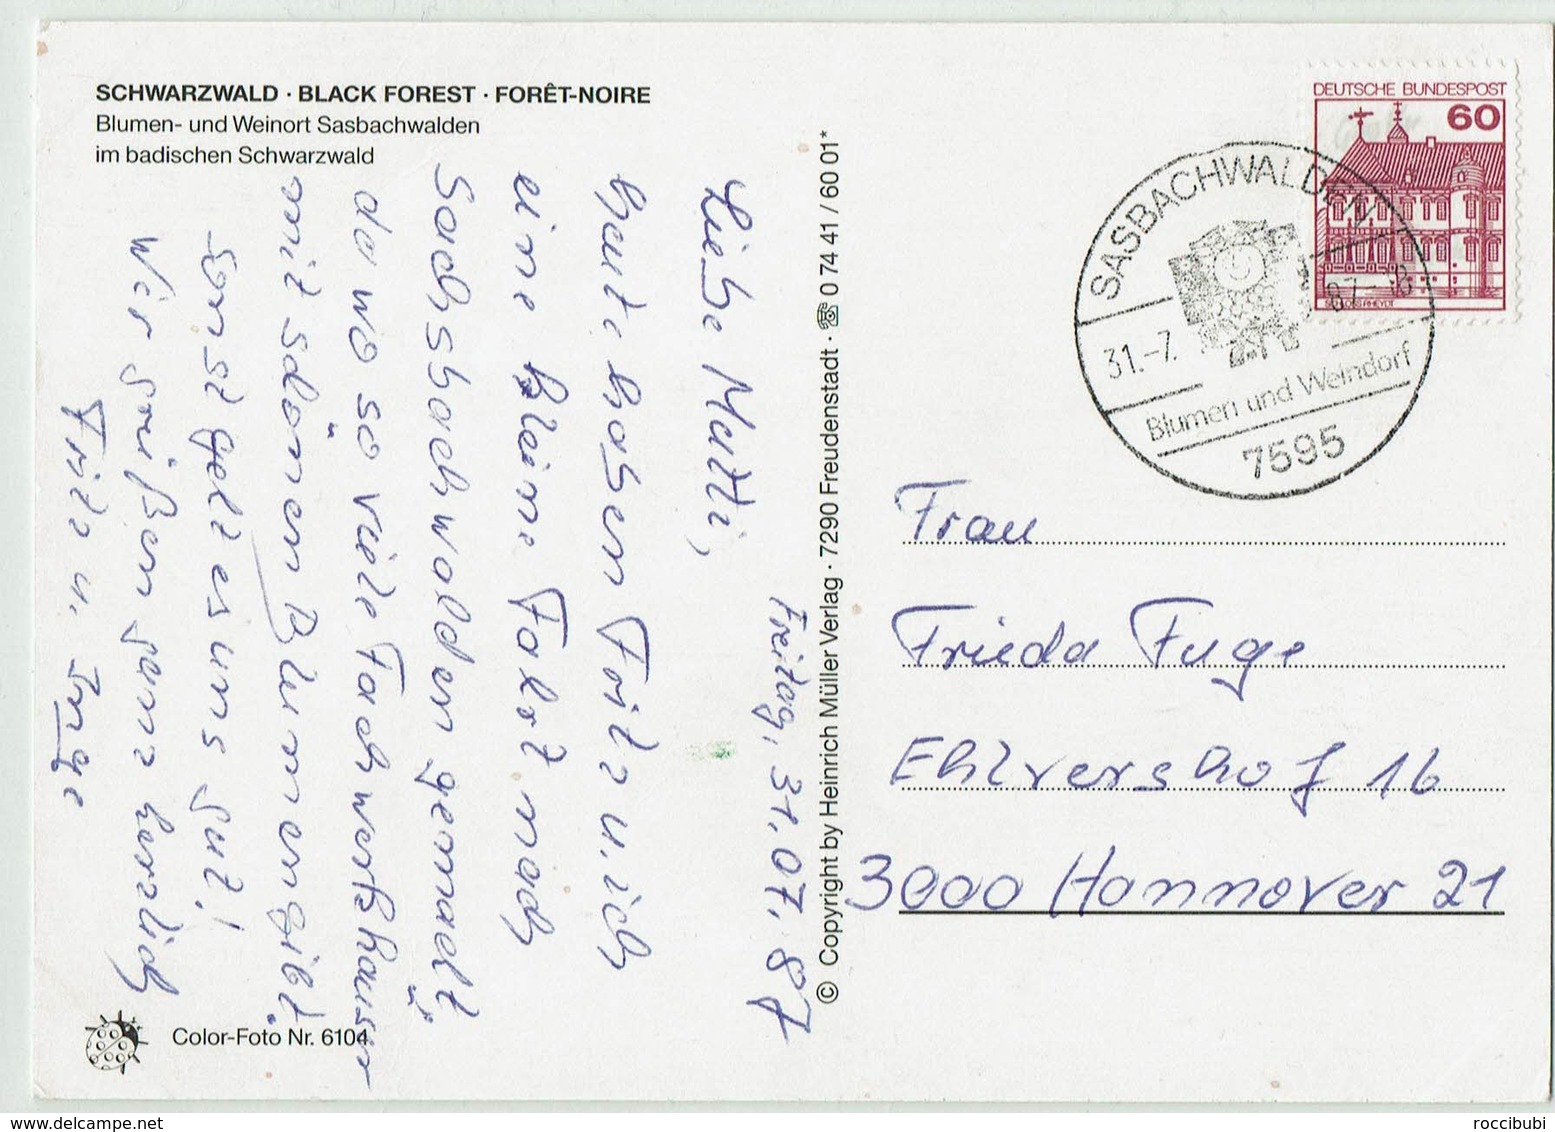 SCHWARZWALD · BLACK FOREST · FORÊT-NOIRE
Blumen- und Weinort Sasbachwalden
im badischen Schwarzwald
Freitag, 31.07.87
Liebe Mutti,
heute haben Fritz u. ich
eine kleine Fahrt nach
Sachsbachwalden gemacht,
da wo so viele Fachwerkhäuser
mit schönen Blumen gibt.
Sonst geht es uns gut!
Wir grüßen ganz herzlich
Fritz u. Inge
Color-Foto Nr. 6104
© Copyright by Heinrich Müller Verlag · 7290 Freudenstadt · ☏ 0 74 41 / 60 01*
DEUTSCHE BUNDESPOST
60
SCHLOSS RHEYDT
SASBACHWALDEN
31.-7. 87-18
Blumen und Weindorf
7595
Frau
Frieda Fuge
Ehlvershof 16
3000 Hannover 21
www.delcampe.net
roccibubi